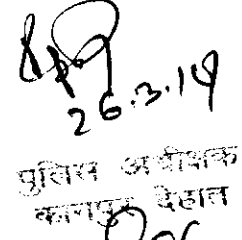 26.3.14
पुलिस अधीक्षक
कानपुर देहात